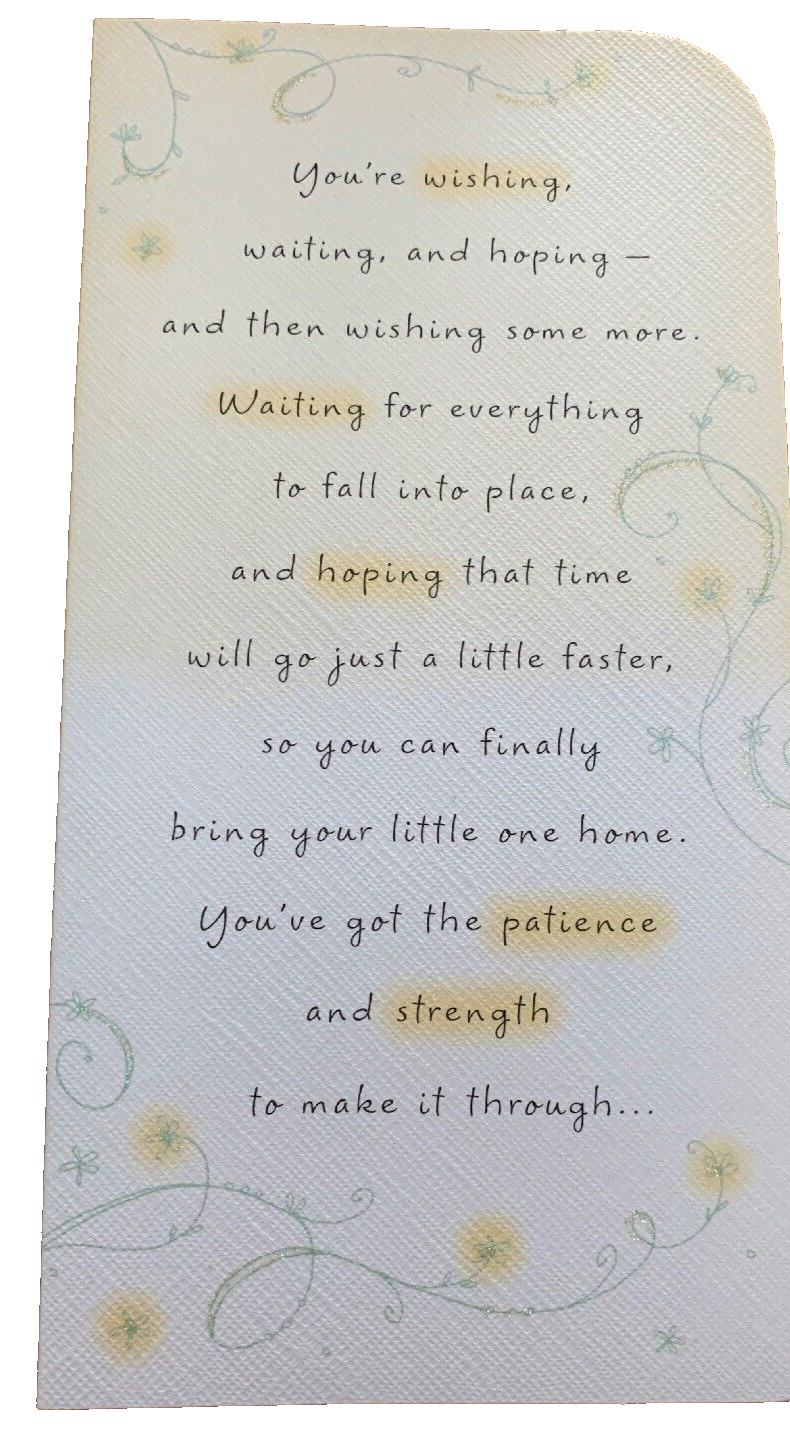 You're wishing,
waiting, and hoping —
and then wishing some more.
Waiting for everything
to fall into place,
and hoping that time
will go just a little faster,
so you can finally
bring your little one home.
You've got the patience
and strength
to make it through...